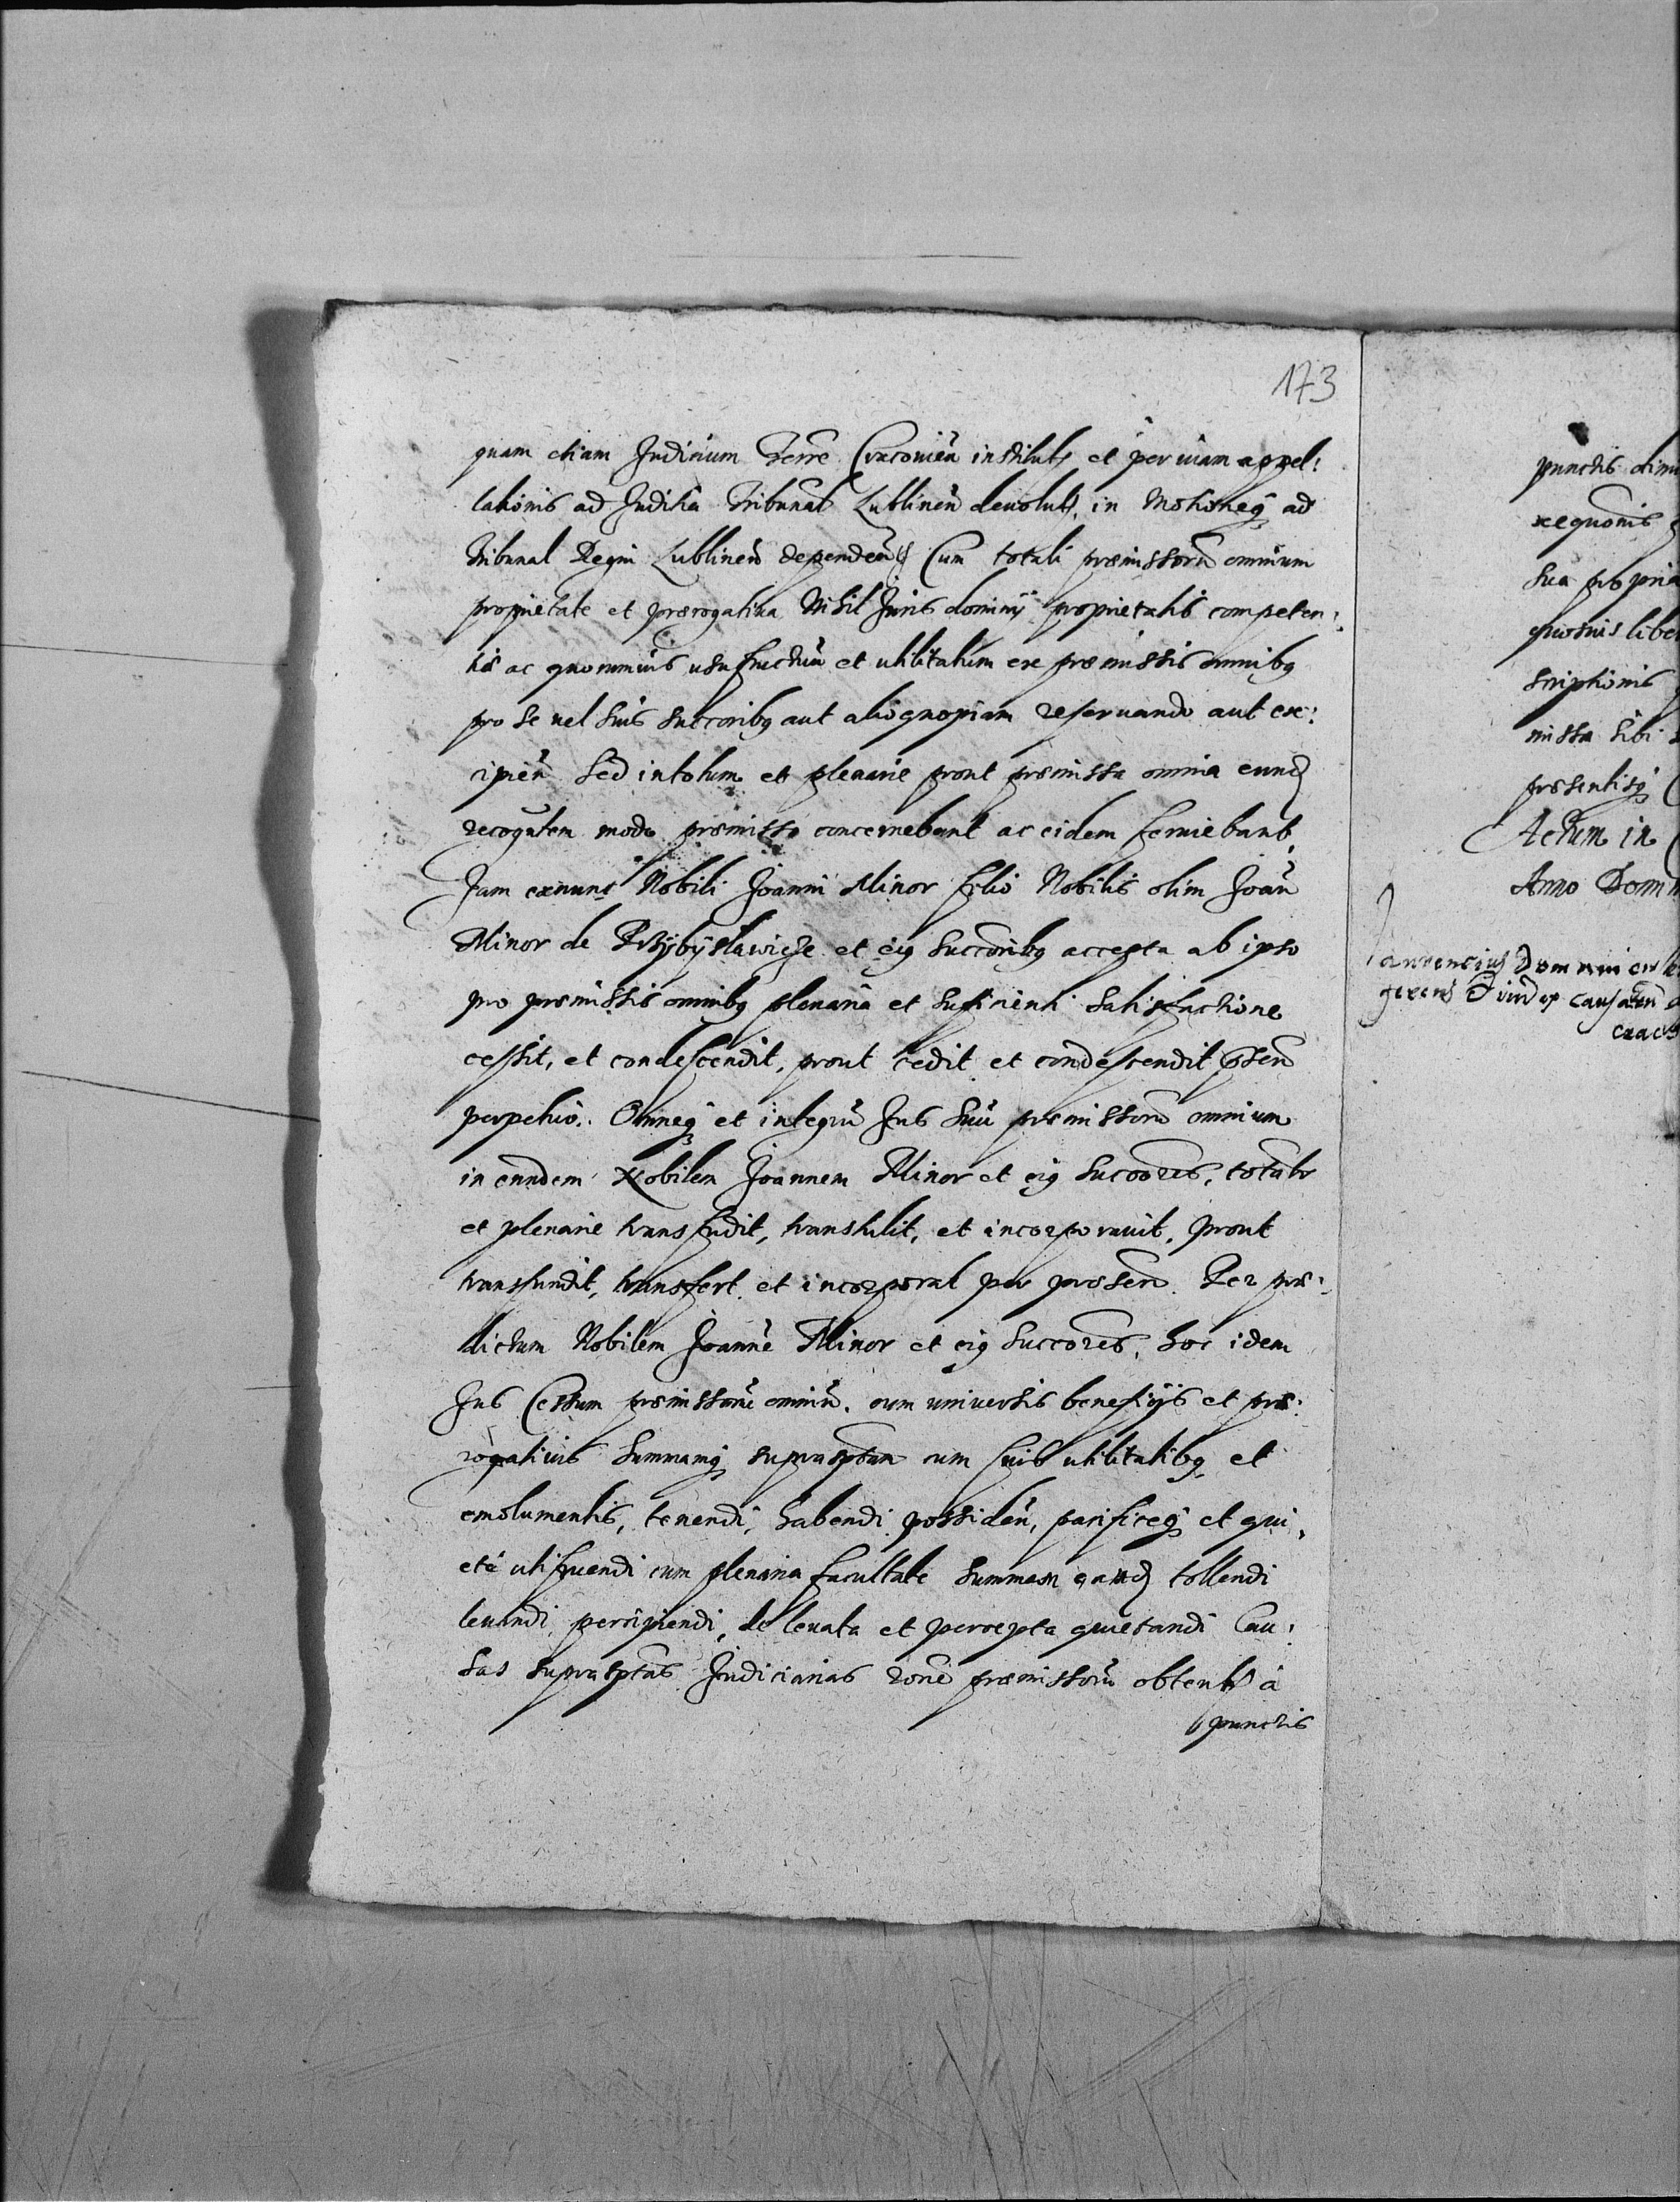 173
quam etiam Judicium Terre Cracouien institut et per uiam appel:
lationis ad Juditia Tribunal Lublinen deuolut, in Motioneq ad
Tribunal Regni Lublinen dependen Cum totali præmissorū omnium
proprietate et prærogatiua Nihil Juris dominij proprietatis competen:
tis ac quorumuis usufructuū et utilitatum ex præmissis omnibq
pro se uel suis succoribq aut alio quopiam reseruando aut exc:
ipien Sed in totum et plenarie prout præmissa omnia eund
recognten modo præmisso concernebant ac eidem seruiebant,
Jam exnunc Nobili Joanni Minor filio Nobilis olim Joan
Minor de Przÿbÿsławicze et eiq succoribq accepta ab ipso
pro præmissis omnibq plenaria et sufficienti satisfactione
cessit, et condescendit, prout cedit et condescendit psen
perpetuo. Omneq et integrū Jus suū præmissorū omnium
in eundem Nobilem Joannem Minor et eiq succores, totalr
et plenarie transfudit, transtulit, et incorporauit, prout
transfundit, transfert et incorporat per præsen. Per præ:
dictum Nobilem Joannē Minor et eiq succores, hoc idem
Jus Cessum præmissorū omniū, cum uniuersis beneficijs et præ:
rogatiuis Summamq suprasptam cum suis utilitatibq et
emolumentis, tenendi, habendi possiden, pacificeq et qui,
etè utifruendi cum plenaria facultate Summam eand tollendi
leuandi, percipiendi, de leuata et percepta quietandi Cau:
sas suprasptas Judiciarias rone præmissorū obtent à
punctis
punctis
sua propria
scriptionis
missa sibi
præsentisq
Actum in
Anno Domi